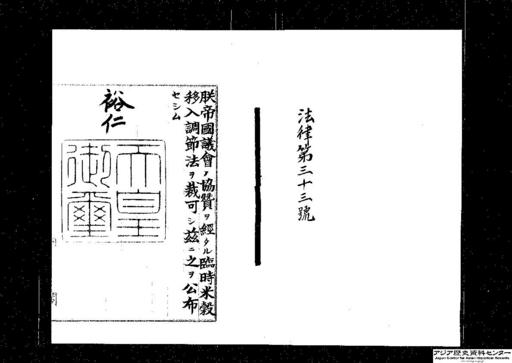 法律第三十三號
朕帝國議會ノ協贊ヲ經タル臨時米穀
移入調節法ヲ裁可シ茲ニ之ヲ公布
セシム
裕仁
天皇
御璽
アジア歴史資料センター
Japan Center for Asian Historical Records